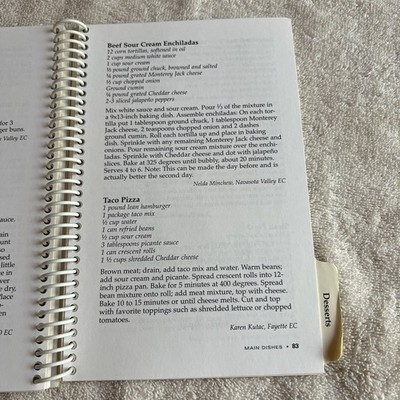 for 3
er buns.
Valley EC
sauce.
in
unt
so
used
little
e in
er
e dry,
Place
to
O EC
Beef Sour Cream Enchiladas
12 corn tortillas, softened in oil
2 cups medium white sauce
1 cup sour cream
½ pound ground chuck, browned and salted
¼ pound grated Monterey Jack cheese
½ cup chopped onion
Ground cumin
¼ pound grated Cheddar cheese
2-3 sliced jalapeño peppers
Mix white sauce and sour cream. Pour ⅓ of the mixture in
a 9x13-inch baking dish. Assemble enchiladas. On each tor-
tilla put 1 tablespoon ground chuck, 1 tablespoon Monterey
Jack cheese, 2 teaspoons chopped onion and 2 dashes
ground cumin. Roll each tortilla up and place in baking
dish. Sprinkle with any remaining Monterey Jack cheese and
onion. Pour remaining sour cream mixture over the enchi-
ladas. Sprinkle with Cheddar cheese and dot with jalapeño
slices. Bake at 325 degrees until bubbly, about 20 minutes.
Serves 4 to 6. Note: This can be made the day before and is
actually better the second day.
Nelda Minchew, Navasota Valley EC
Taco Pizza
1 pound lean hamburger
1 package taco mix
½ cup water
1 can refried beans
½ cup sour cream
3 tablespoons picante sauce
1 can crescent rolls
1 ½ cups shredded Cheddar cheese
Brown meat; drain, add taco mix and water. Warm beans;
add sour cream and picante. Spread crescent rolls into 12-
inch pizza pan. Bake for 5 minutes at 400 degrees. Spread
bean mixture onto roll; add meat mixture, top with cheese.
Bake 10 to 15 minutes or until cheese melts. Cut and top
with favorite toppings such as shredded lettuce or chopped
tomatoes.
Karen Kutac, Fayette EC
MAIN DISHES • 83
Desserts